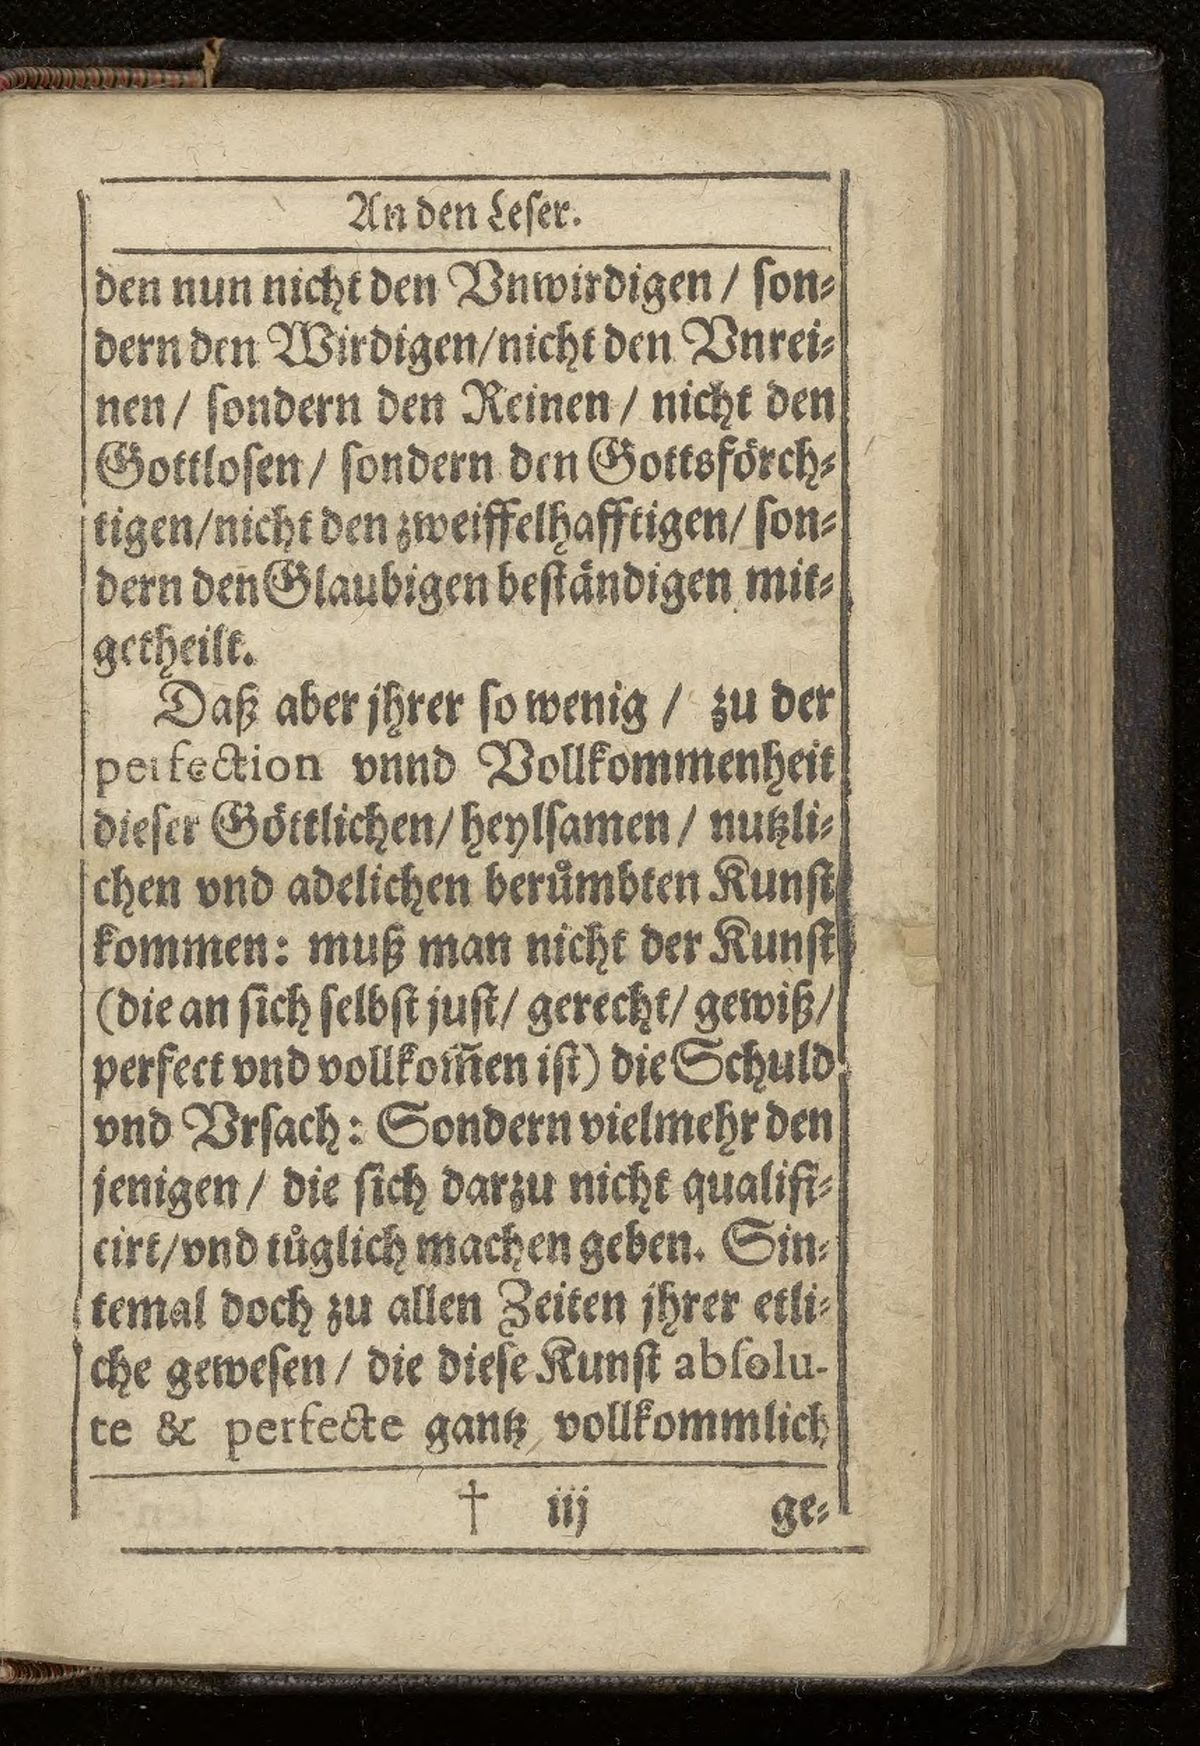 An den Leser.
den nun nicht den Vnwirdigen / ſon⸗
dern den Wirdigen/nicht den Vnrei⸗
nen / ſondern den Reinen / nicht den
Gottloſen / ſondern den Gottsförch⸗
tigen/nicht den zweiffelhafftigen/ ſon⸗
dern den Glaubigen beſtändigen mit⸗
getheilt.
Daß aber jhrer ſo wenig / zu der
perfection vnnd Vollkommenheit
dieſer Göttlichen/ heylſamen / nutzli⸗
chen vnd adelichen beruͤmbten Kunſt
kommen: muß man nicht der Kunſt
(die an ſich ſelbſt juſt/ gerecht/ gewiß/
perfect vnd vollkom̃en iſt) die Schuld
vnd Vrſach: Sondern vielmehr den
jenigen / die ſich darzu nicht qualifi⸗
cirt/vnd tuͤglich machen geben. Sin⸗
temal doch zu allen Zeiten jhrer etli⸗
che geweſen / die dieſe Kunſt abſolu-
te & perfecte gantz vollkommlich
† iij ge⸗